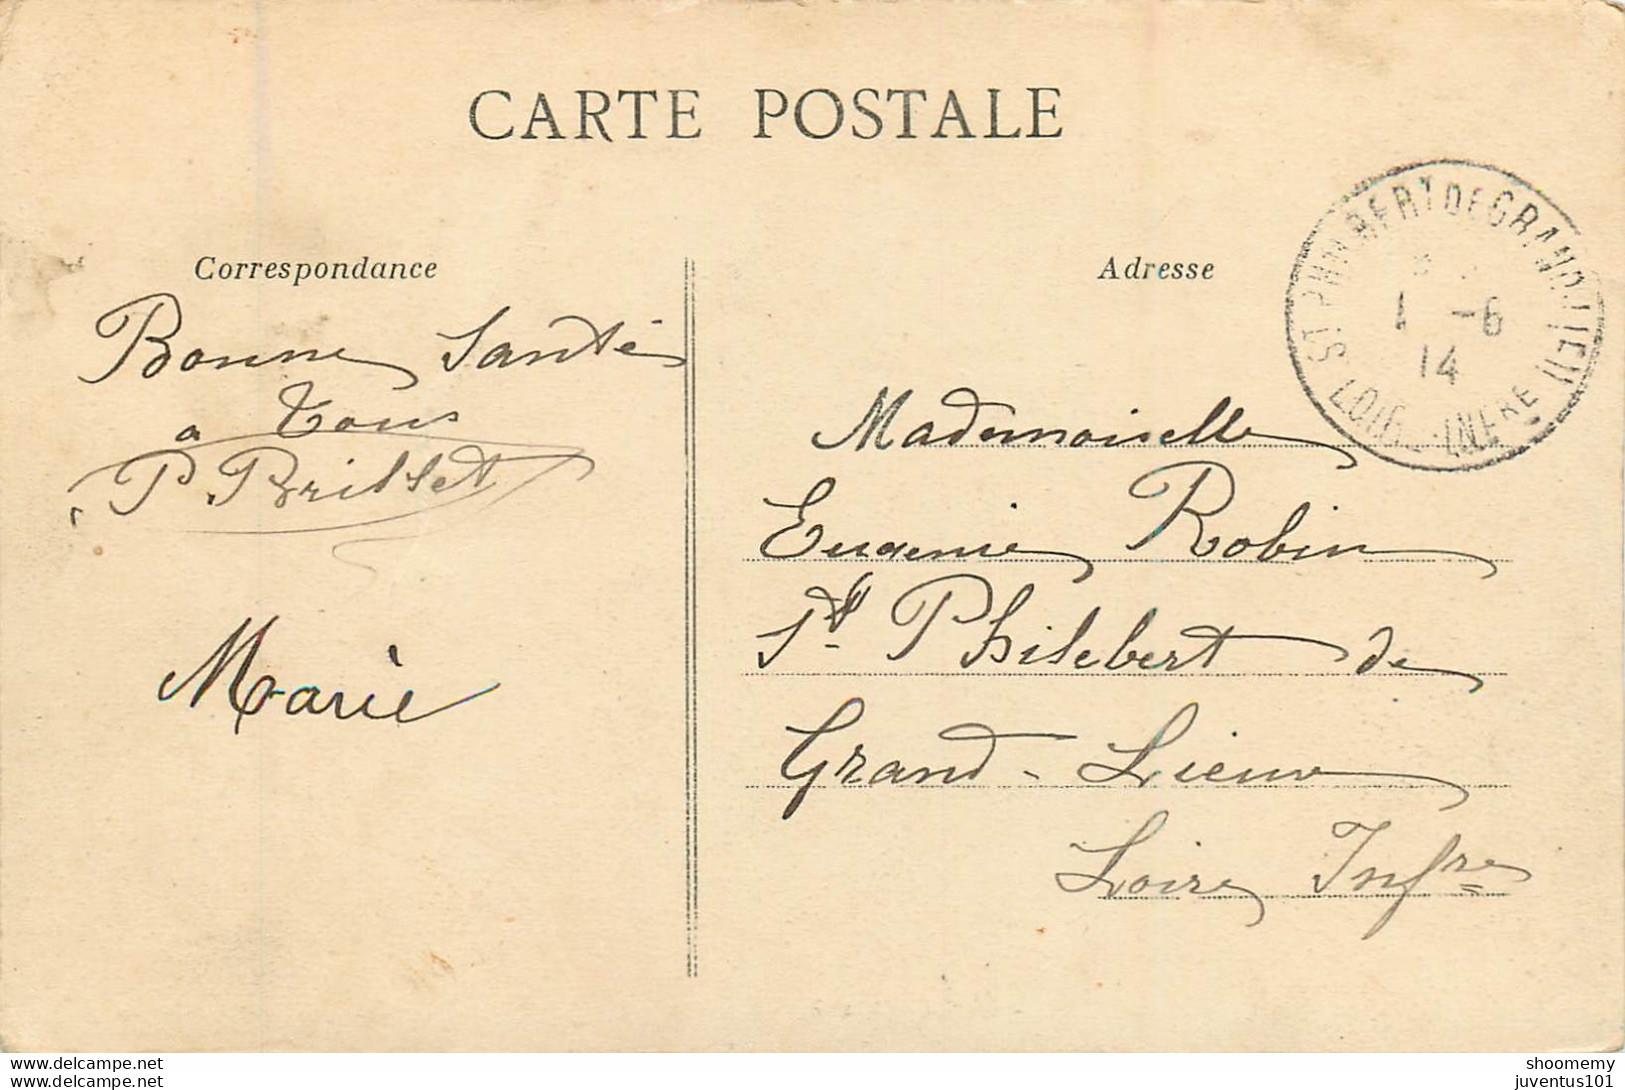 CARTE POSTALE
Correspondance
Bonne Santé
a Tous
P. Brillet
Marie
Adresse
Mademoiselle
Eugenie Robin
St Philebert de
Grand-Lieux
Loire Infre
ST PHILBERT DE GRAND LIEU
1 -6
14
LOIRE INFRE
www.delcampe.net
www.delcampe.net
shoomemy
juventus101